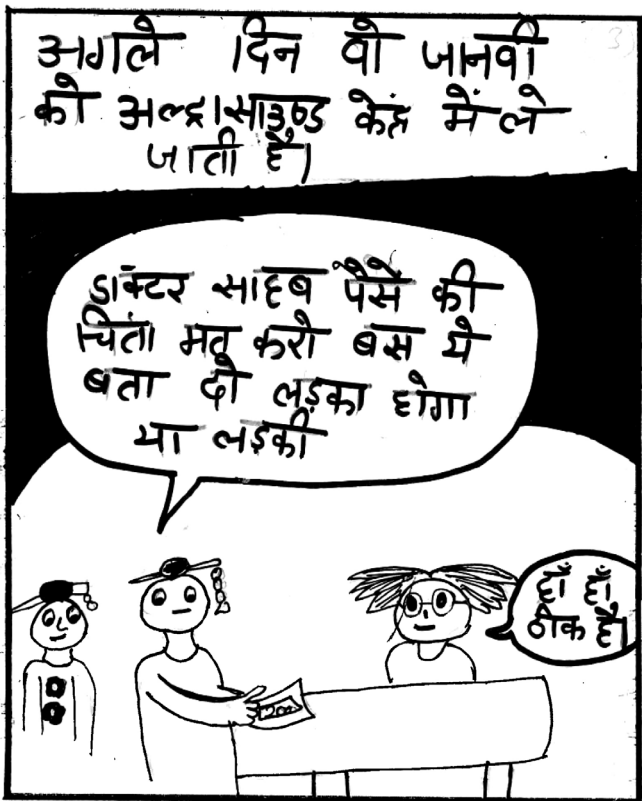 3
अगले दिन वो जानवी
को अल्ट्रासाउण्ड केंद्र में ले
जाती है।
डॉक्टर साहब पैसे की
चिंता मत करो बस ये
बता दो लड़का होगा
या लड़की
हाँ हाँ
ठीक है।
200